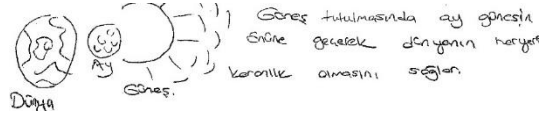 Güneş tutulmasında ay güneşin
önüne geçerek dünyanın heryeri
karanlık olmasını sağlar.
Ay
Güneş.
Dünya